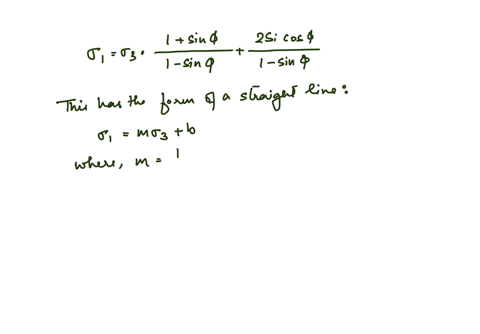 σ₁ = σ₃ · (1 + sin ϕ)/(1 - sin ϕ) + (2Si cos ϕ)/(1 - sin ϕ)
This has the form of a straight line:
σ₁ = mσ₃ + b
where, m = 1